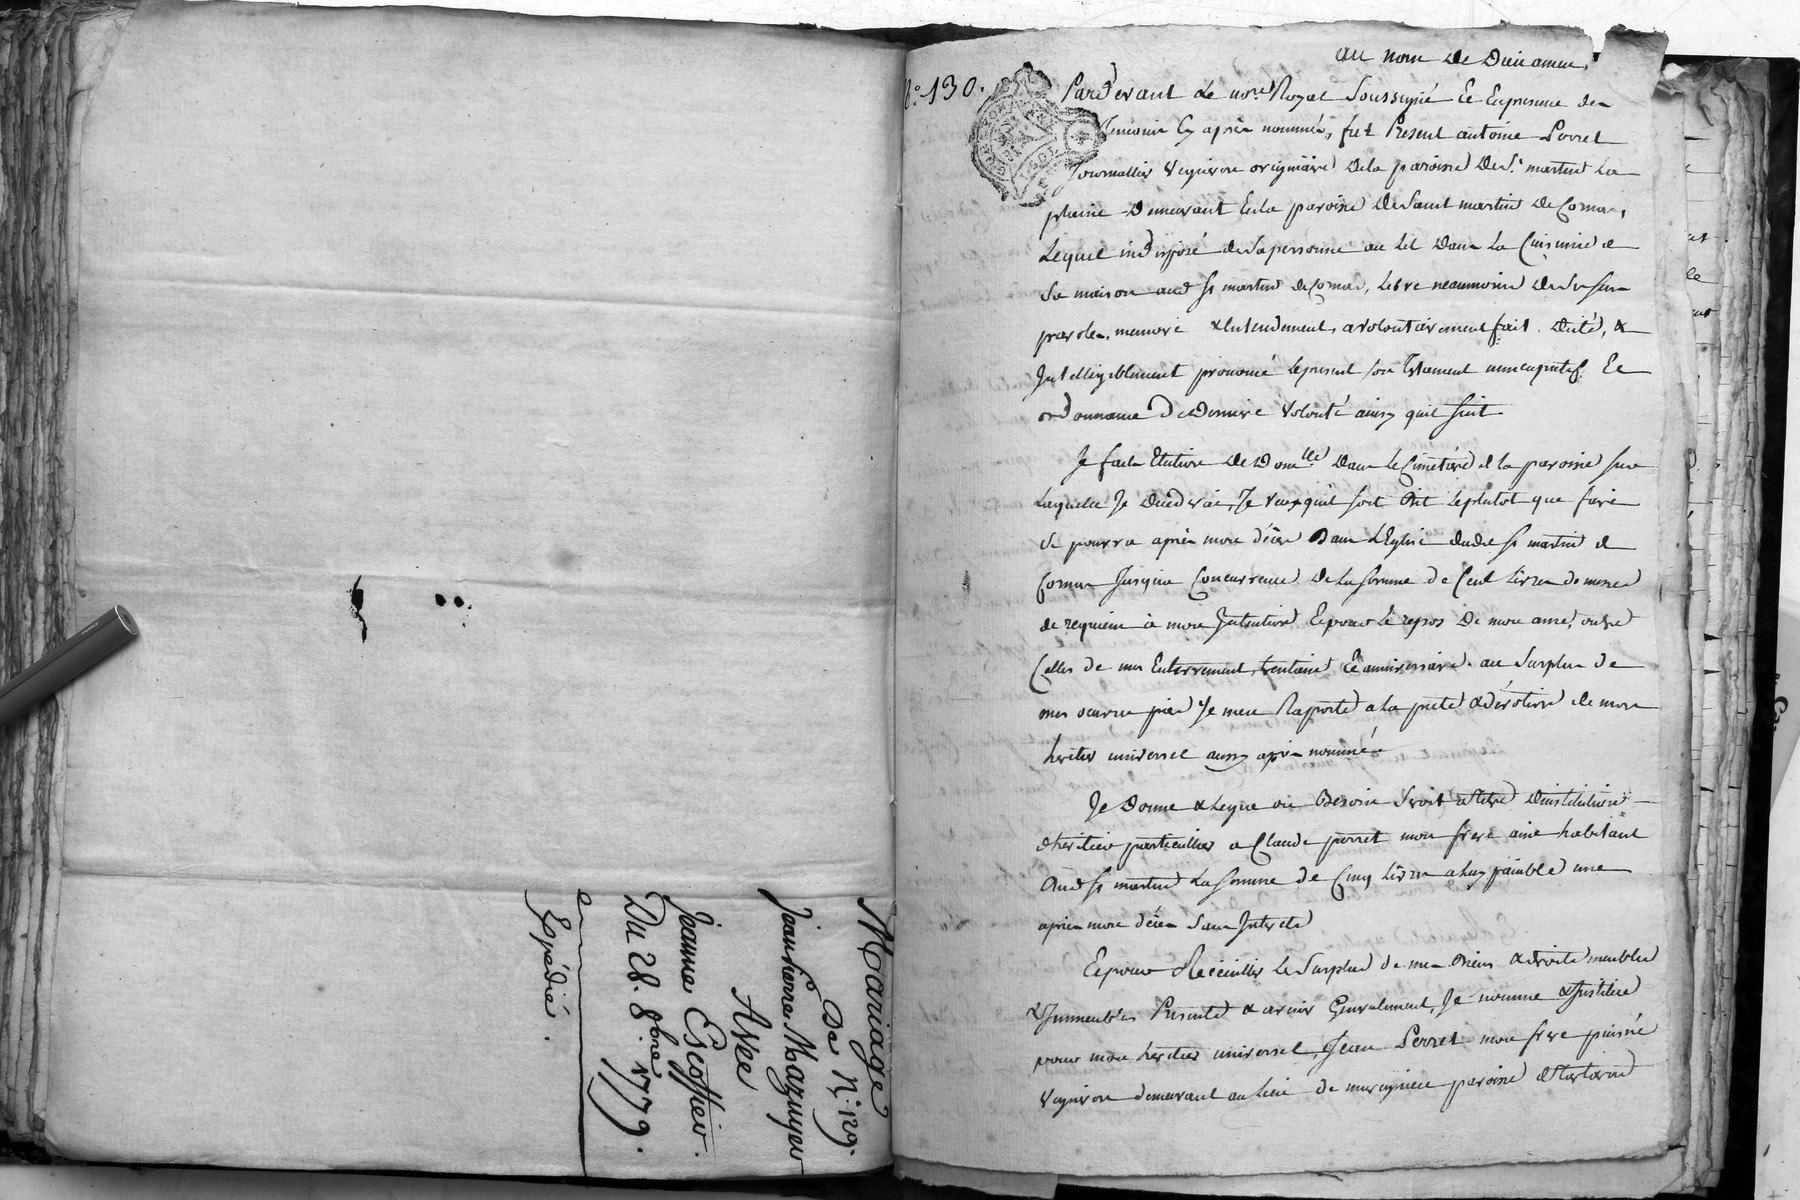 Mariage
De N.° 129.
Jean Pierre Mazuyer
Avec
Jeanne Escoffier.
Du 28. 8bre 1779.
Expédié.
N.° 130.
au nom de Dieu amen,
Pardevant le nore Royal Soussigné Et En presence des
temoins Cy après nommés, fut Present antoine Perret
Journallier vigneron originaire de la paroisse de St martin La
plaine demeurant En la paroisse de Saint martin de Cornas,
Lequel indisposé de Sa personne au lit dans La Cuisine de
Sa maison aud St martin de Cornas, Libre neanmoins de Ses sens
parole, memoire & Entendement, a volontairement fait dicté, &
Intelligiblement prononcé le present son Testament nuncupatif Et
ordonnance de Derniere volonté ainsy quil suit
Je fais Election de Domlle dans le Cimetière de la paroisse sur
Laquelle Je décéderai, Je veux quil soit dit le plutot que faire
Se pourra après mon décès dans L'Eglise dudit St martin de
Cornas Jusqua Concurrence de la somme de Cent Livres de messes
de requiem à mon Intention Et pour le repos de mon ame, outre
Celles de mes Enterrement, trentaine Et anniversaire. au Surplus de
mes oeuvres pies Je men Raporte a la pieté & dévotion de mon
heritier universel aussy après nommé
Je Donne & Legue où Besoin Seroit a titre d'institution
d'heritier particullier a Claude perret mon frere ainé habitant
Aud St martin La somme de Cinq Livres a luy païable une
après mon décès Sans Interets
Et pour Recueillir le Surplus de mes Biens & droits meubles
& Immeubles Presents & avenir Generalement, Je nomme & Institue
pour mon heritier universel, Jean Perret mon frere puisné
vigneron demeurant au lieu de paroisse de Tartaras